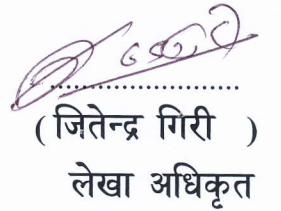 ( जितेन्द्र गिरी )
लेखा अधिकृत